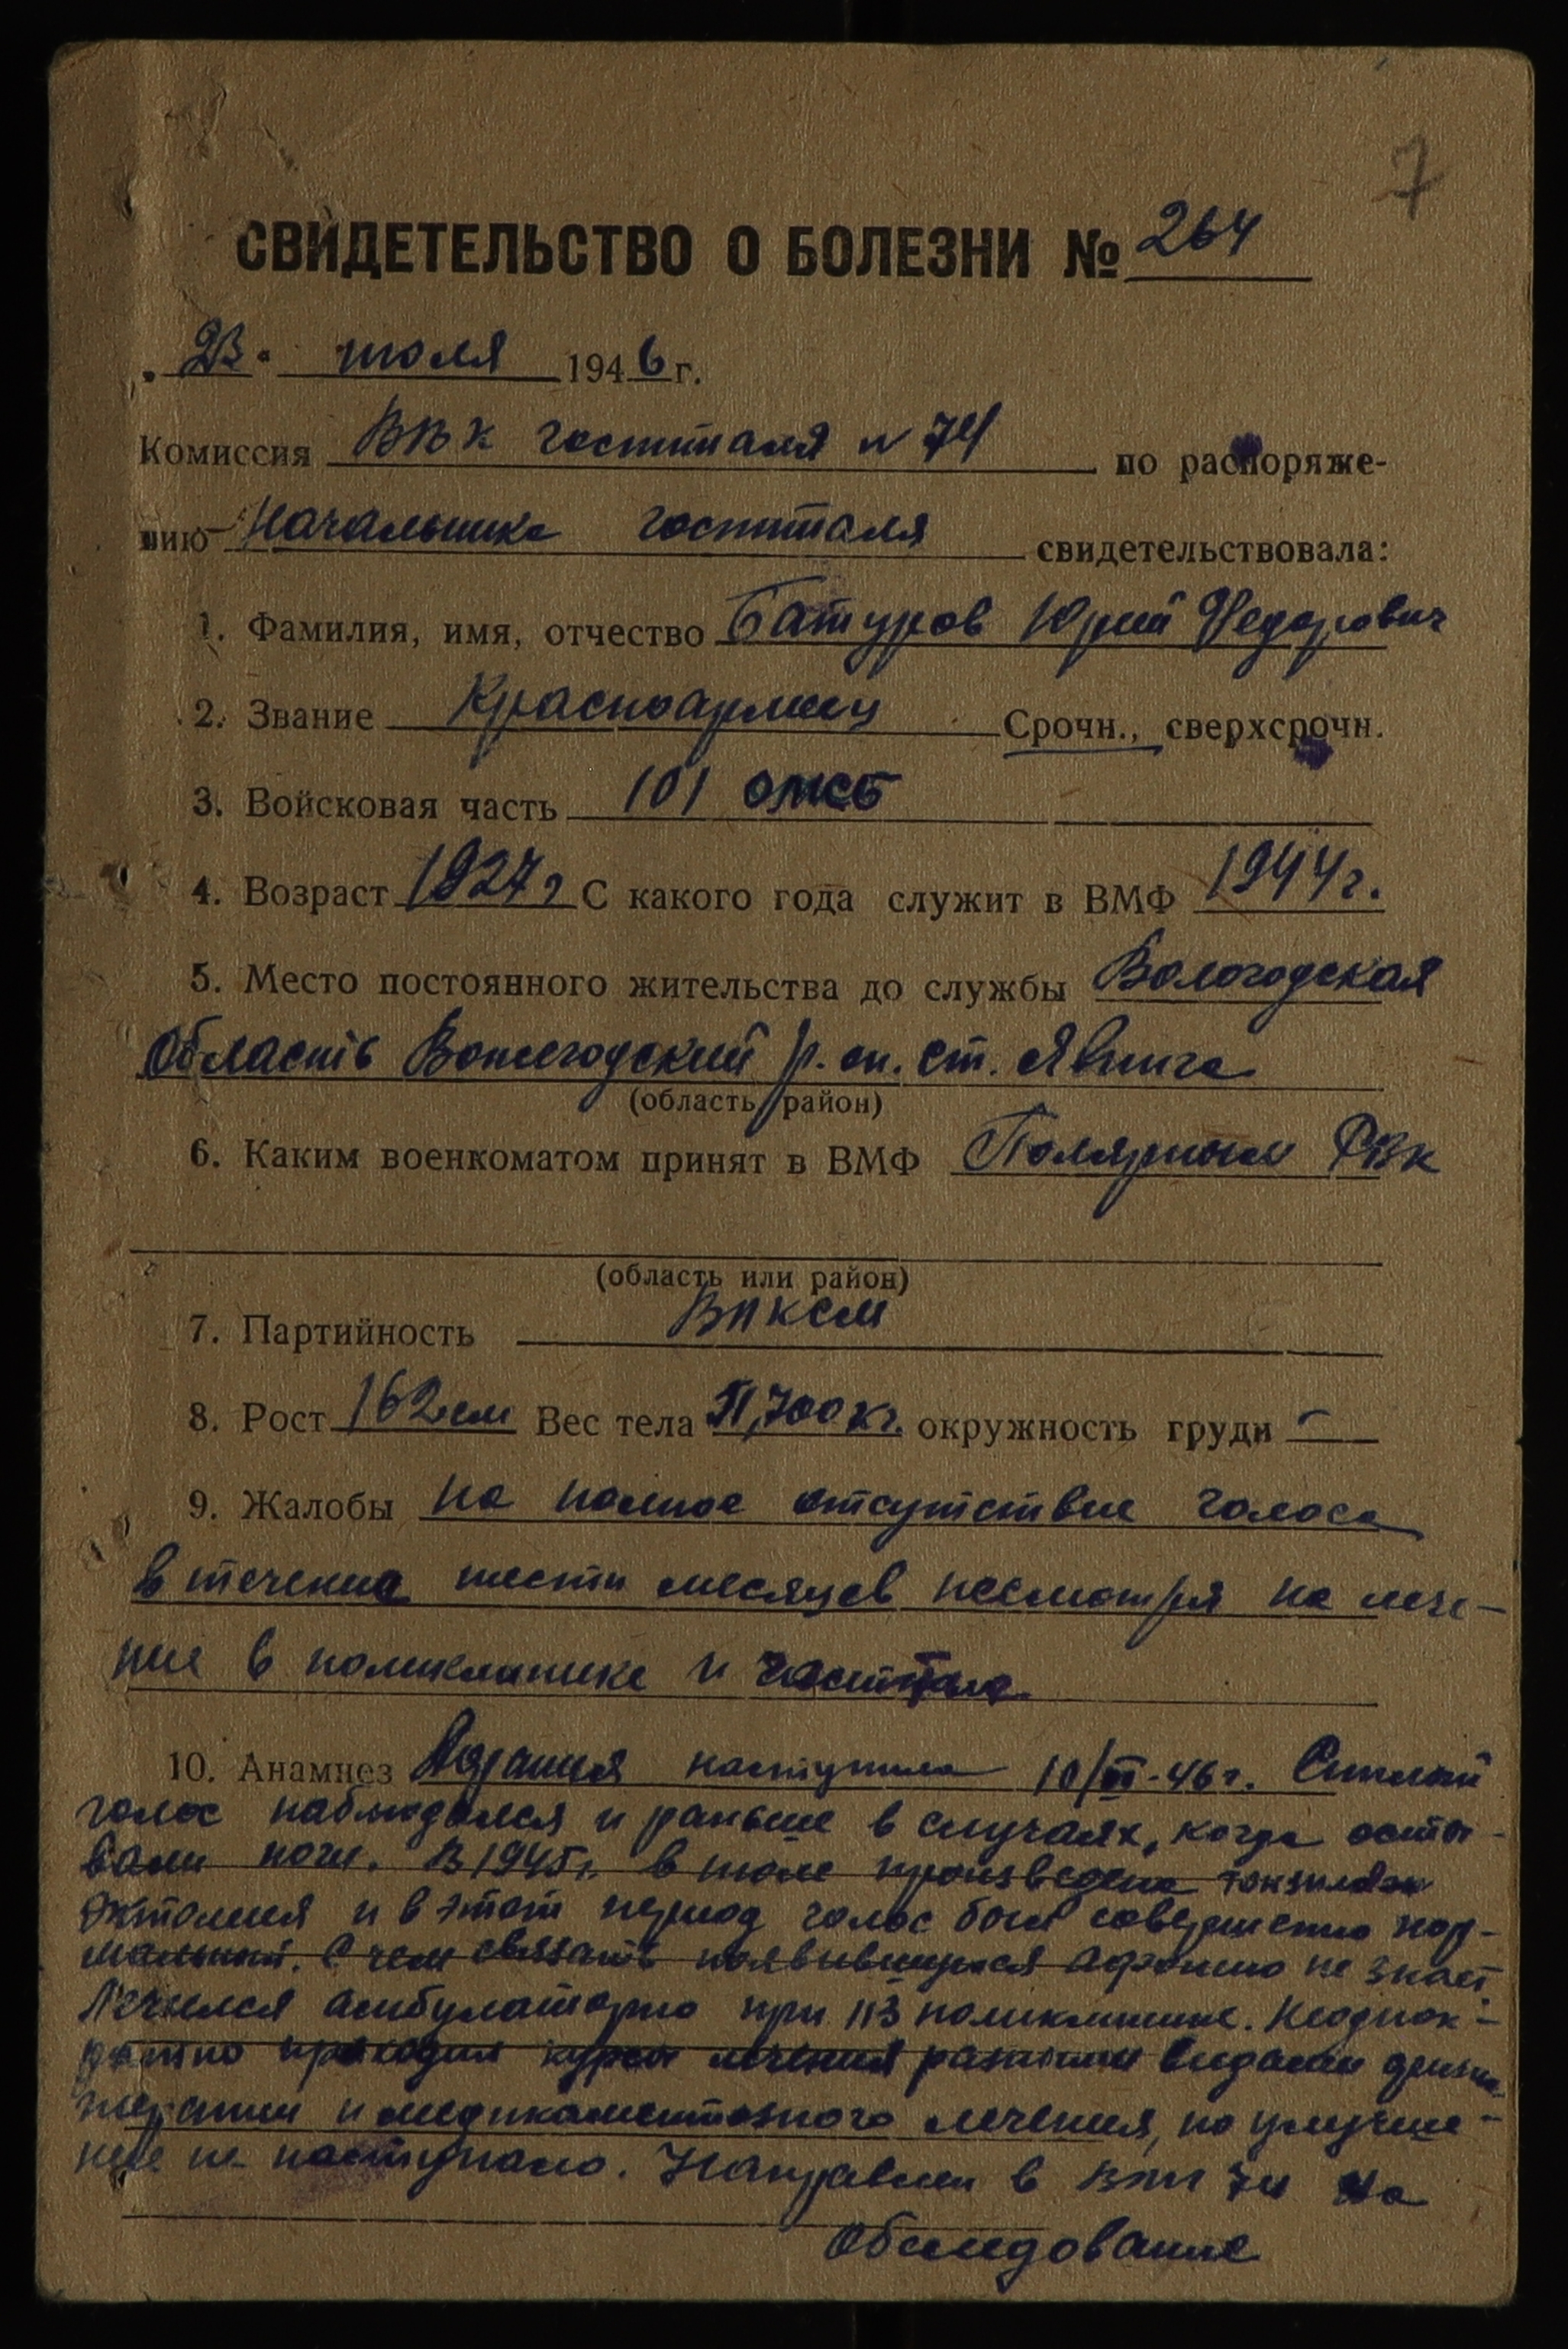 7
СВИДЕТЕЛЬСТВО О БОЛЕЗНИ № 264
„23“ июля 1946 г.
Комиссия ВВК госпиталя N 74 по распоряже-
нию Начальника госпиталя свидетельствовала:
1. Фамилия, имя, отчество Батуров Юрий Федорович
2. Звание Красноармеец Срочн., сверхсрочн.
3. Войсковая часть 101
4. Возраст 1927 г С какого года служит в ВМФ 1944 г.
5. Место постоянного жительства до службы Вологодская
область р. он. ст. Явенга
(область, район)
6. Каким военкоматом принят в ВМФ Полярным РВК
(область или район)
7. Партийность ВЛКСМ
8. Рост 162 см Вес тела 51,700 кг. окружность груди —
9. Жалобы на полное отсутствие голоса
в течение шести месяцев несмотря на лече-
ние в поликлинике и госпитале
10. Анамнез Афония наступила 10/ -46 г. Сиплый
голос наблюдался и раньше в случаях, когда осты-
вали ноги. В 1945 г. в июле произведена тонзилэк
эктомия и в этот период голос был совершенно нор-
мальный. С чем связать появившуюся афонию не знает.
Лечился амбулаторно при 113 поликлинике. Неоднок-
ратно проходил курсы лечения разными видами физио-
терапии и медикаментозного лечения, но улучше-
ние не наступало. Направлен в 74 на
обследование